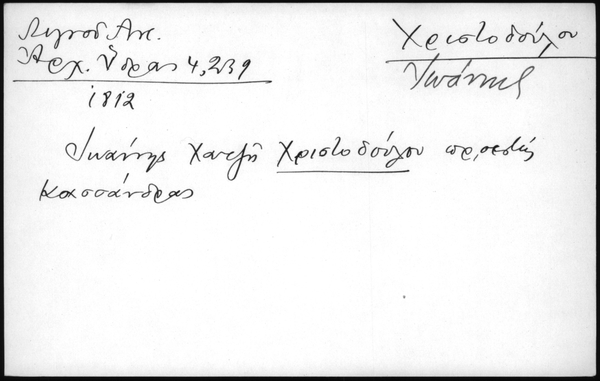 Λιγνοῦ Ἀντ.
Ἀρχ. Ὕδρας 4,239
1812
Χριστοδούλου
Ἰωάννης
Ἰωάννης Χατζῆ Χριστοδούλου προεστώς
Κασσάνδρας